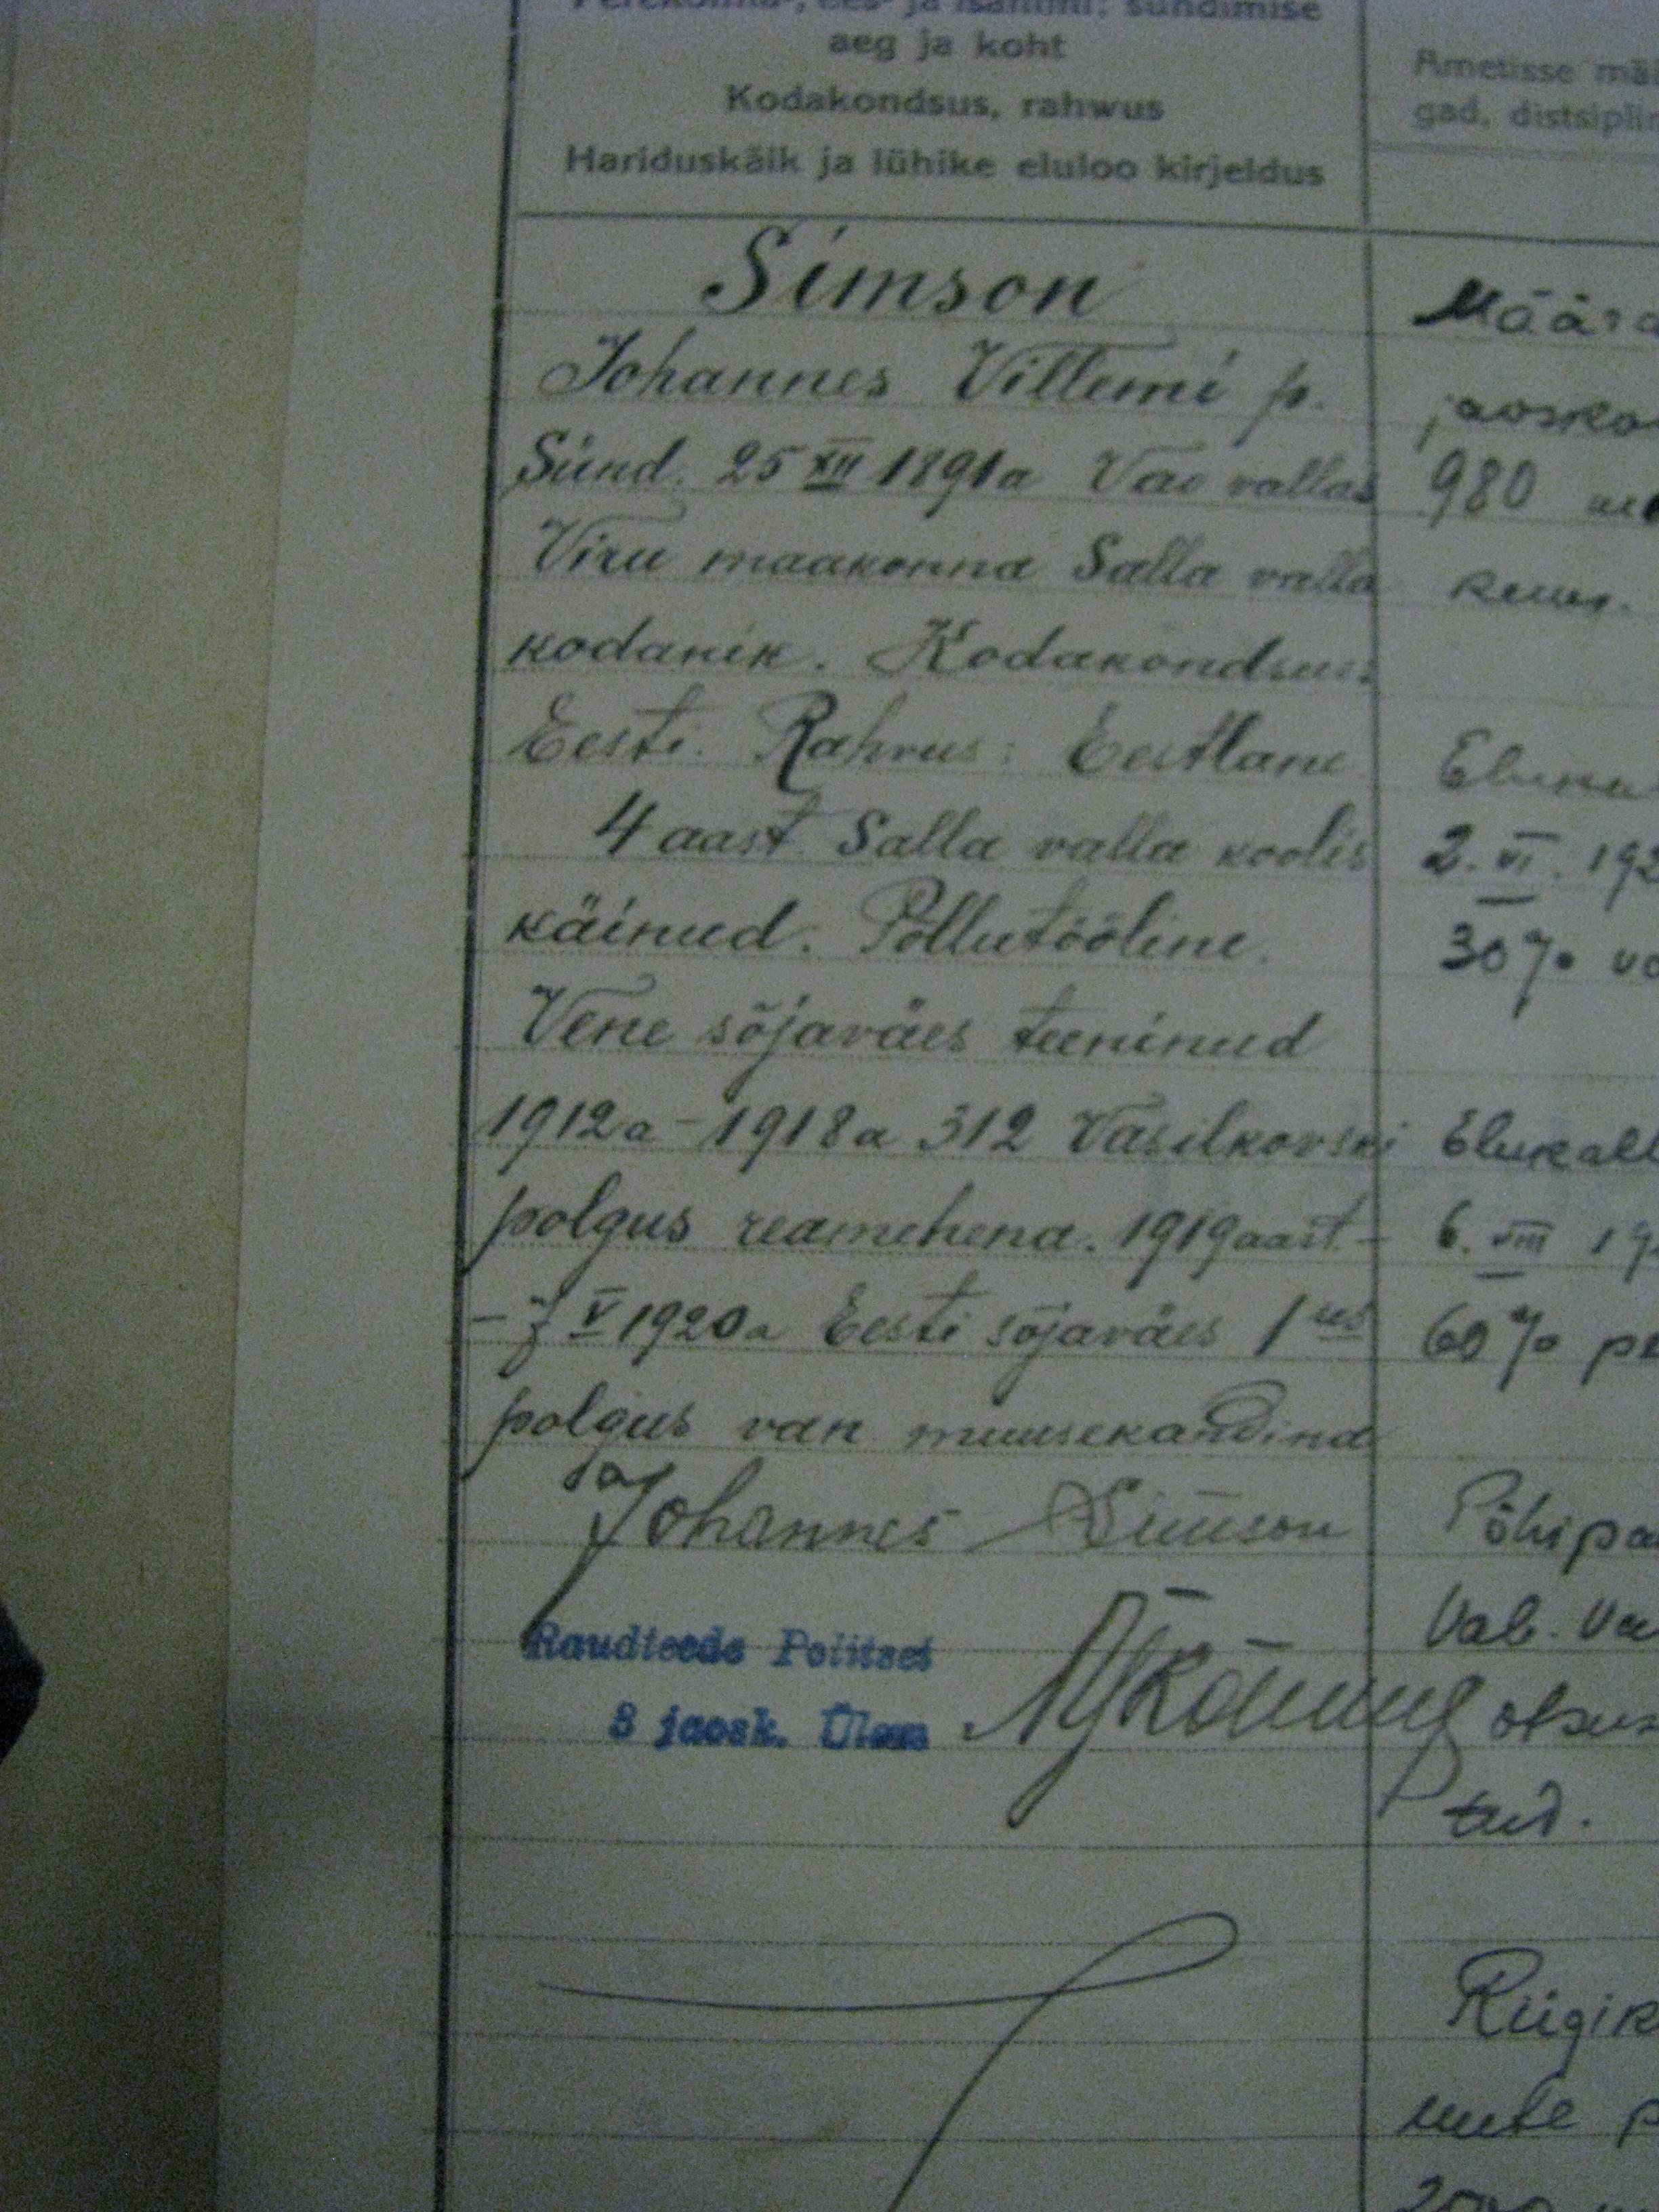 Perekonna-, ees- ja isanimi; sündimise
aeg ja koht
Kodakondsus, rahwus
Hariduskäik ja lühike eluloo kirjeldus
Ametisse mää
gad, distsiplin
Simson
Johannes Villemi p.
Sünd. 25 XII 1891a Vao vallas
Viru maakonna Salla valla
kodanik. Kodakondsus:
Eesti. Rahvus: Eestlane
4 aast. Salla valla koolis
käinud. Põllutööline.
Vene sõjaväes teeninud
1912a - 1918a 312 Vasilkovski
polgus reamehena. 1919 aast. -
- 7 V 1920a Eesti sõjaväes 1 ses
polgus van
Johannes Simson
Raudteede Politsei
8 jaosk. Ülem
Määra
jaosko
980
2. VI. 192
30%
Elukall
6. VIII 19
60%
Põhipa
Vab. Va
otsus
tud.
Riigik